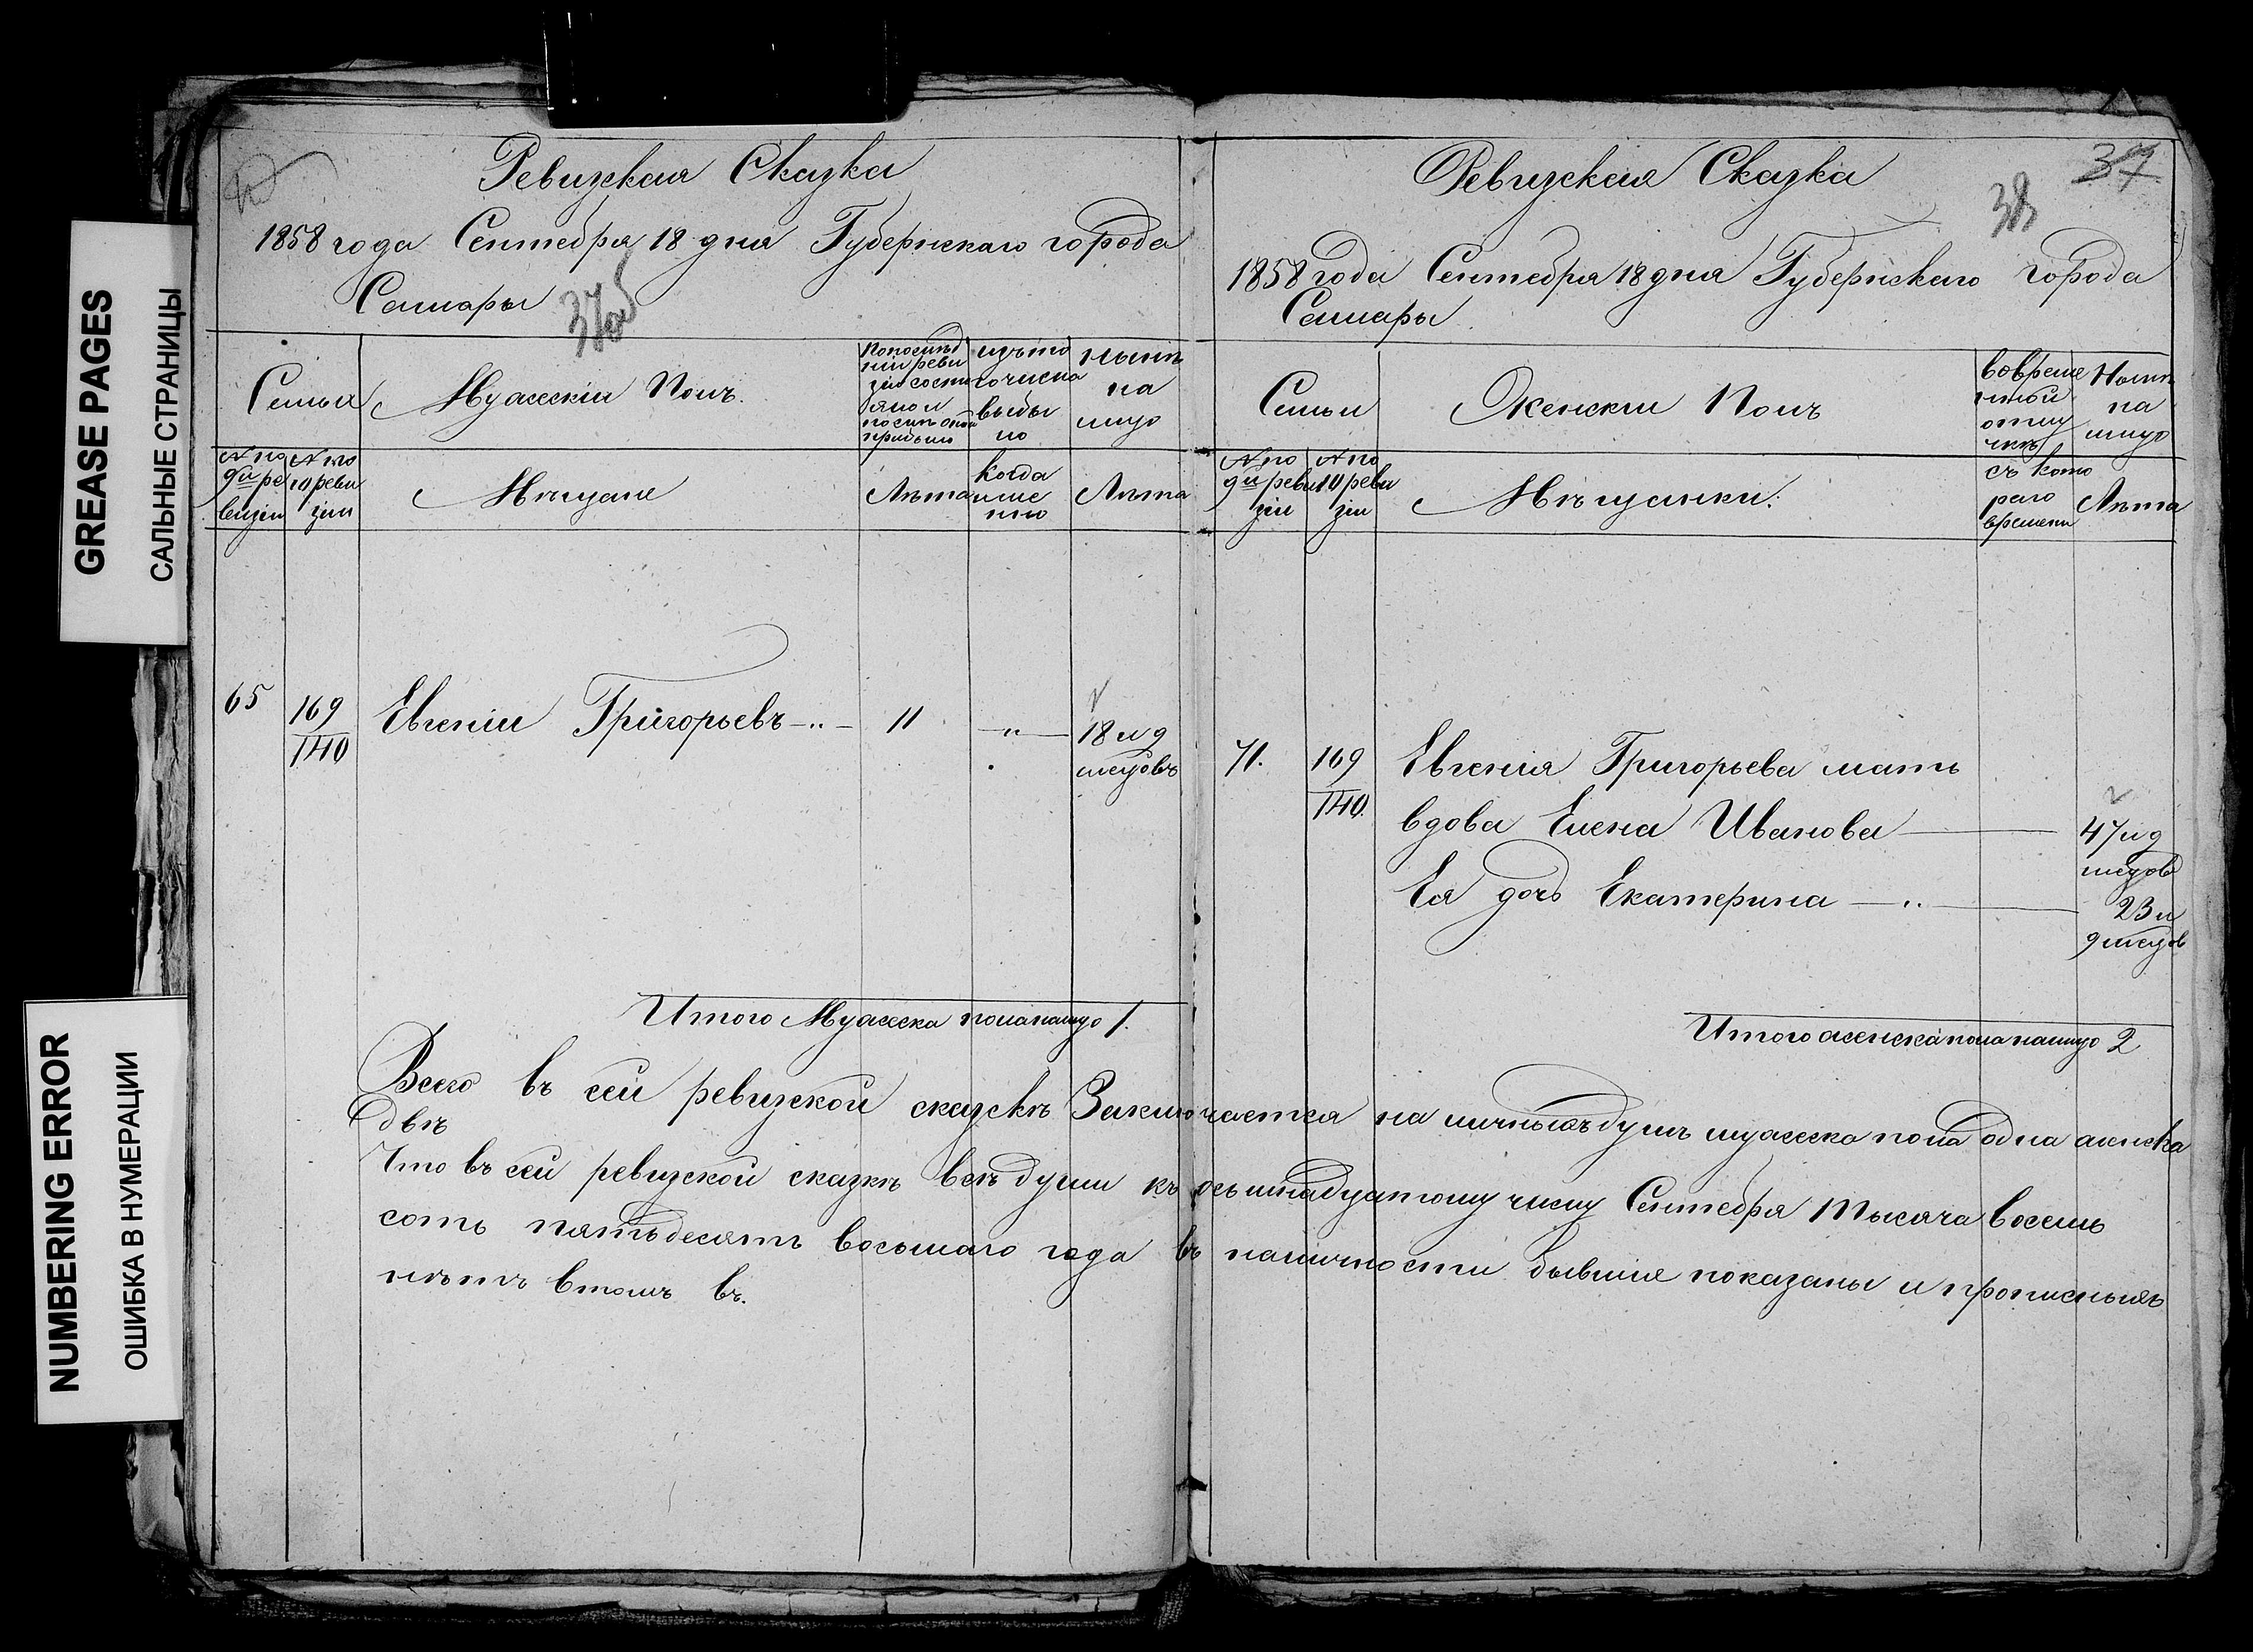 GREASE PAGES
САЛЬНЫЕ СТРАНИЦЫ
NUMBERING ERROR
ОШИБКА В НУМЕРАЦИИ
Ревизская Сказка
1858 года Сентебря 18 дня Губернскаго города
Самары
37об
Семьи
Мужескій Полъ.
Попослѣд
ніи реви
зіи состо
яло и
послѣ оной
прибыло
изъ то
го числа
выбы
ло
Нынѣ
на
лицо
№ по
9й ре
визіи
№ по
10 реви
зіи
Мѣщане
Лѣта
когда
име
нно
Лѣта
65
169
140
Евгеніи Григорьевъ
11
"
18 и 9
месцовъ
Итого Мужеска пола налицо 1.
Ревизская Сказка
37
38
1858 года Сентебря 18 дня Губернскаго города
Самары
Семьи
Женскіи Полъ
вовреме
нной
отлу
чкѣ
Нынѣ
на
лицо
№ по
9й реви
зіи
№ по
10 реви
зіи
Мѣщанки.
съ кото
раго
времени
Лѣта
71.
169
140.
Евгенія Григорьева мать
вдова Елена Иванова
47 и 9
месцов
Ея дочь Екатерина
23 и
9 месцов
Итого женска пола налицо 2
Всего въ сеи ревизской сказкѣ Заключается на личныхъ душъ мужеска пола одна женска
двѣ
Что въ сеи ревизской сказкѣ всѣ души къ осьмнадцатому числу Сентебря тысяча восемь
сотъ пятьдесятъ восьмаго года въ наличности бывшія показаны и прописныхъ
нѣтъ втомъ въ.